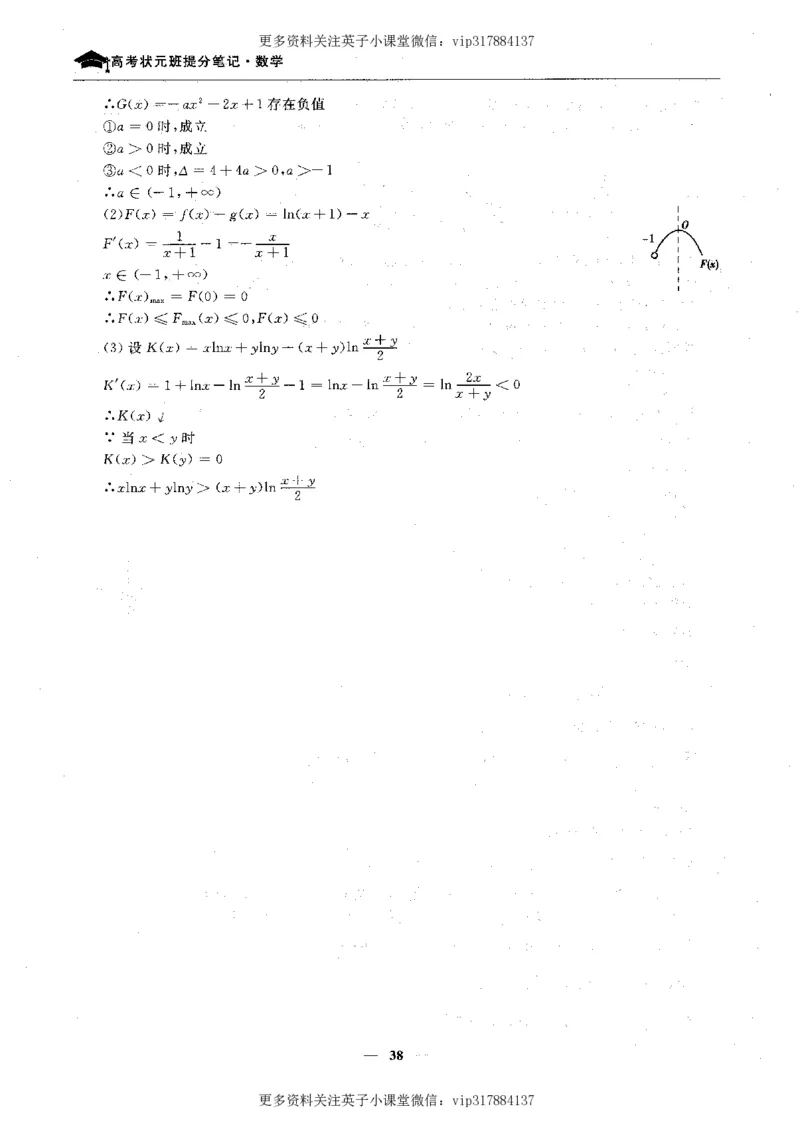 更多资料关注英子小课堂微信：vip317884137
高考状元班提分笔记·数学
∴G(x) =－ax² －2x＋1存在负值
①a = 0时，成立
②a＞0时，成立
③a＜0时，Δ = 4＋4a＞0，a＞－1
∴a∈(－1，＋∞)
(2)F(x) = f(x)－g(x) = ln(x＋1)－x
F′(x) = 1/(x＋1) －1 =－ x/(x＋1)
x∈(－1，＋∞)
∴F(x)max = F(0) = 0
∴F(x)≤Fmax(x)≤0，F(x)≤0
O
-1
F(x)
(3) 设K(x) = xlnx＋ylny－(x＋y)ln (x＋y)/2
K′(x) = 1＋lnx－ln (x＋y)/2 －1 = lnx－ln (x＋y)/2 = ln 2x/(x＋y) ＜0
∴K(x)↓
∵当x＜y时
K(x)＞K(y) = 0
∴xlnx＋ylny＞(x＋y)ln (x＋y)/2
— 38 —
更多资料关注英子小课堂微信：vip317884137